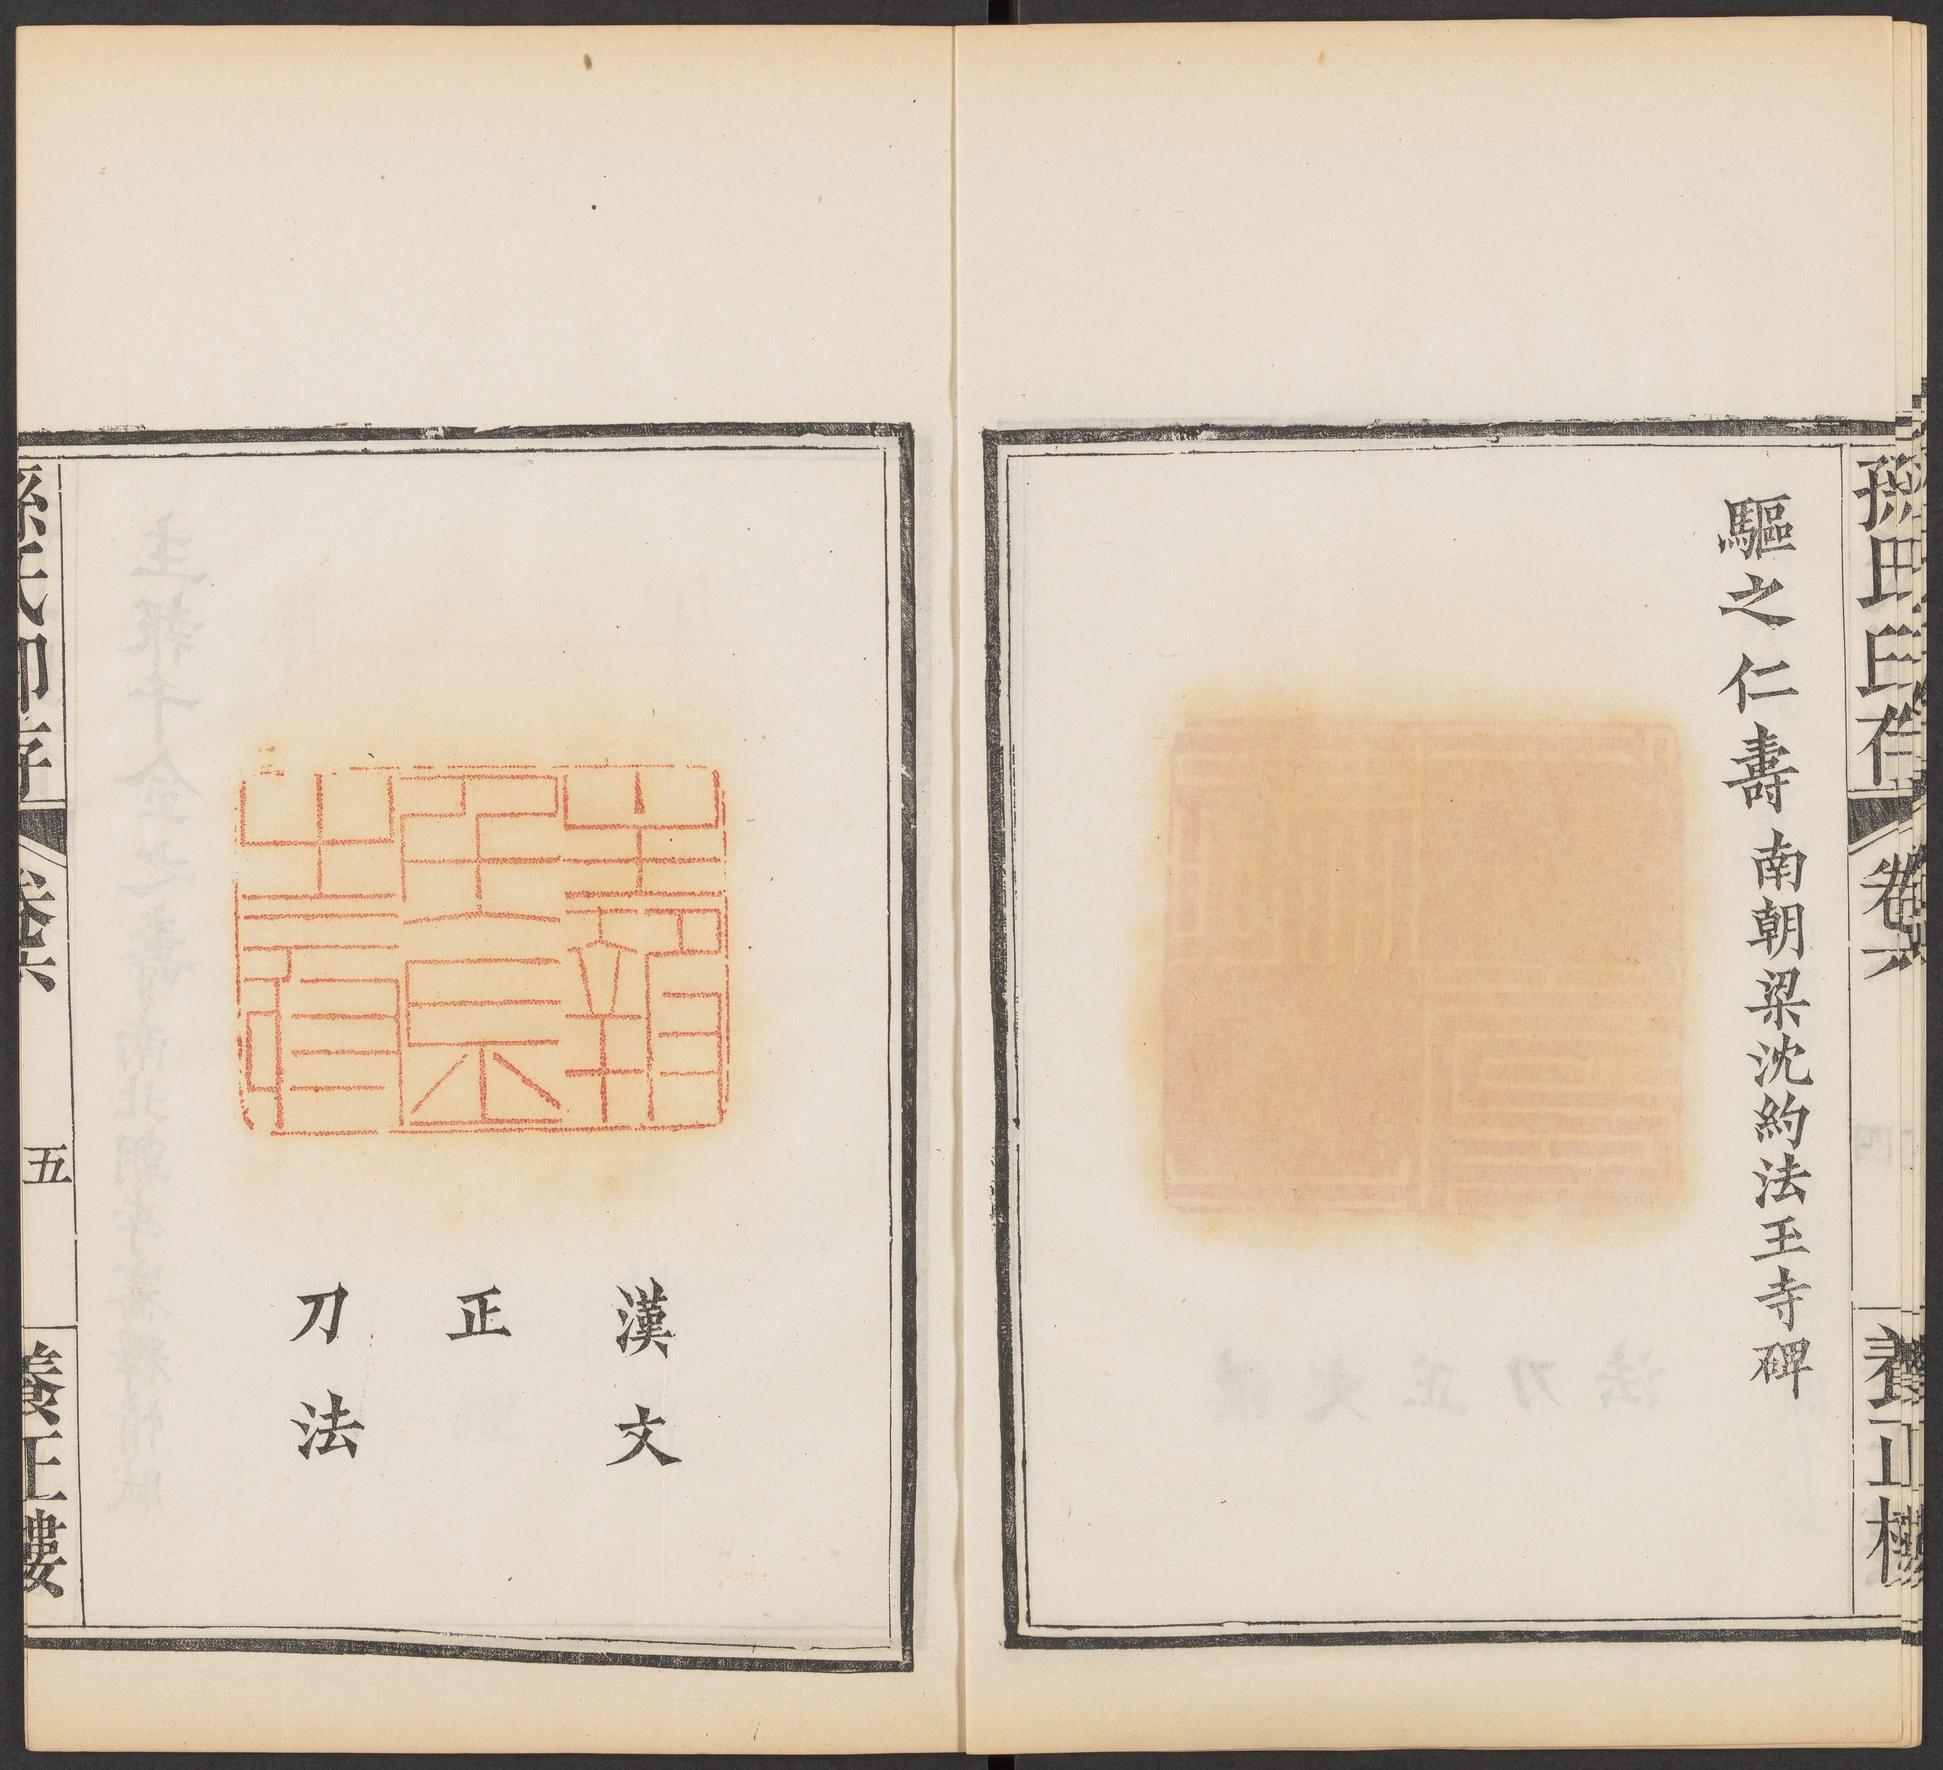 驅之仁壽南朝梁沈約法王寺碑
孫氏印存
卷六
養正樓
漢文
正
刀法
孫氏印存
卷六
五
養正樓